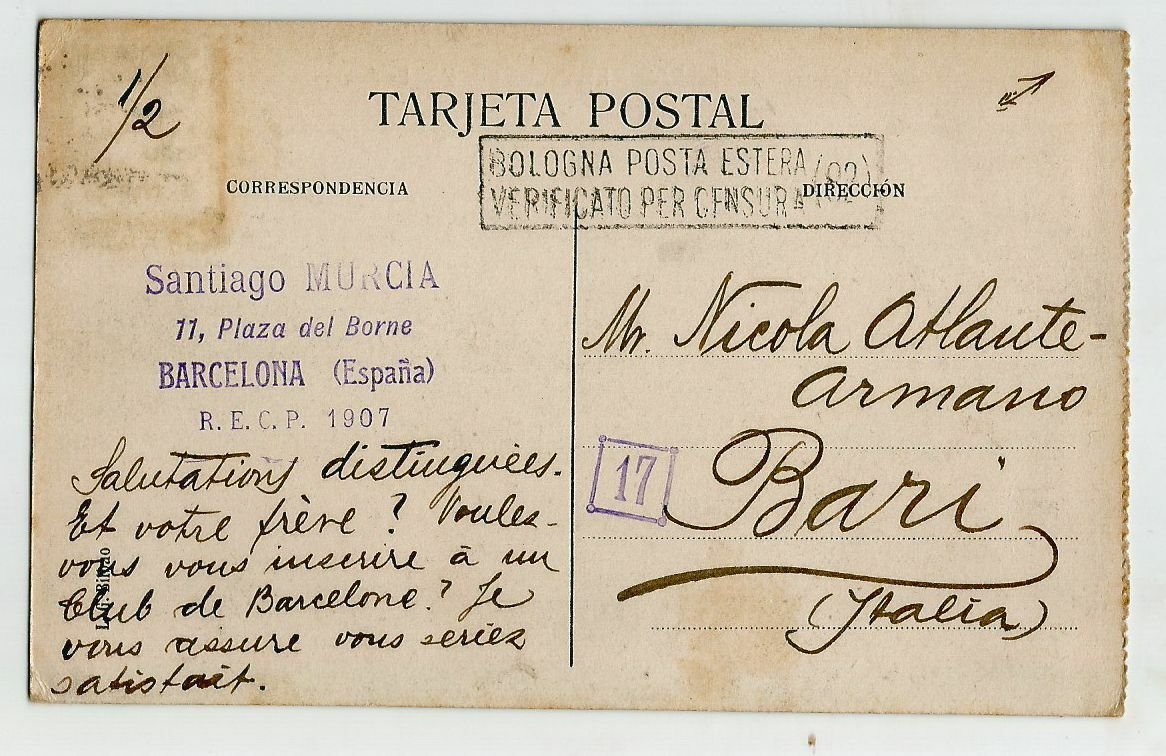 1/2
TARJETA POSTAL
BOLOGNA POSTA ESTERA
VERIFICATO PER CENSURA (92)
CORRESPONDENCIA
DIRECCIÓN
Santiago MURCIA
11, Plaza del Borne
BARCELONA (España)
R. E. C. P. 1907
Salutations distinguées.
Et votre frère? Voulez-
vous vous inscrire à un
Club de Barcelone? Je
vous assure vous seriez
satisfait.
Mr. Nicola Atlante-
Armano
17
Bari
(Italia)